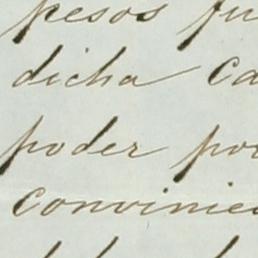 pesos fu
dicha Ca
poder po
convinie